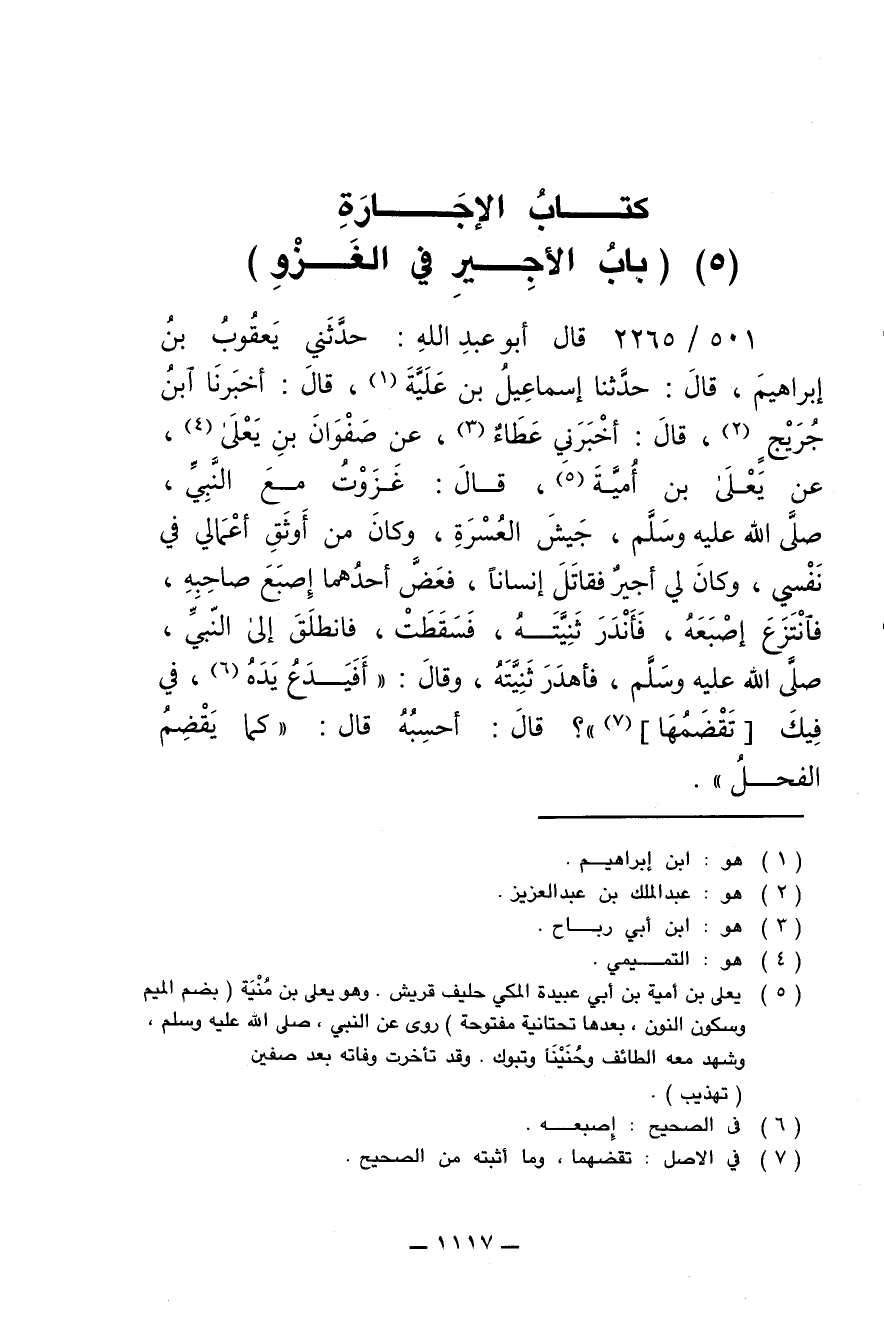 كتـــابُ الإجَـــارَةِ
(٥) ( بابُ الأجِـــيرِ في الغَـــزْوِ )
٥٠١ / ٢٢٦٥ قال أبو عبدِ اللهِ : حدَّثَني يَعقُوبُ بنُ
إبراهيمَ ، قالَ : حدَّثنا إسماعِيلُ بن عَلَيَّةَ (١) ، قالَ : أخبَرنَا ٱبنُ
جُرَيْجٍ (٢) ، قالَ : أخْبَرَني عَطَاءٌ (٣) ، عن صَفْوَانَ بنِ يَعْلَىٰ (٤) ،
عن يَعْـلَىٰ بن أُميَّةَ (٥) ، قـالَ : غَـزَوْتُ مـعَ النَّبِيِّ ،
صلَّى الله عليه وسَلَّم ، جَيشَ العُسْرَةِ ، وكانَ من أَوثَقِ أعْمَالي في
نَفْسي ، وكانَ لي أجيرٌ فقاتَلَ إنساناً ، فعَضَّ أحدُهما إصبَعَ صاحِبِهِ ،
فٱنْتَزَعَ إصْبَعَهُ ، فَأَنْدَرَ ثَنِيَّتَـــهُ ، فَسَقَطَتْ ، فانطلَقَ إلىٰ النّبيِّ ،
صلَّى الله عليه وسَلَّم ، فأهدَرَ ثَنِيَّتَهُ ، وقالَ : « أَفَيَـــدَعُ يَدَهُ (٦) ، في
فِيكَ [ تَقْضَمُهَا ] (٧) »؟ قالَ : أحسِبُهُ قال : « كما يَقْضِمُ
الفحـــلُ » .
(١) هو : ابن إبراهيـــم .
(٢) هو : عبدالملك بن عبدالعزيز .
(٣) هو : ابن أبي ربـــاح .
(٤) هو : التمـــيمي .
(٥) يعلى بن أمية بن أبي عبيدة المكي حليف قريش . وهو يعلى بن مُنْيَة ( بضم الميم
وسكون النون ، بعدها تحتانية مفتوحة ) روى عن النبي ، صلى الله عليه وسلم ،
وشهد معه الطائف وحُنَيْنَاً وتبوك . وقد تأخرت وفاته بعد صفين
( تهذيب ) .
(٦) فى الصحيح : إصبعـــه .
(٧) في الاصل : تقضهما ، وما أثبته من الصحيح .
— ١١١٧ —